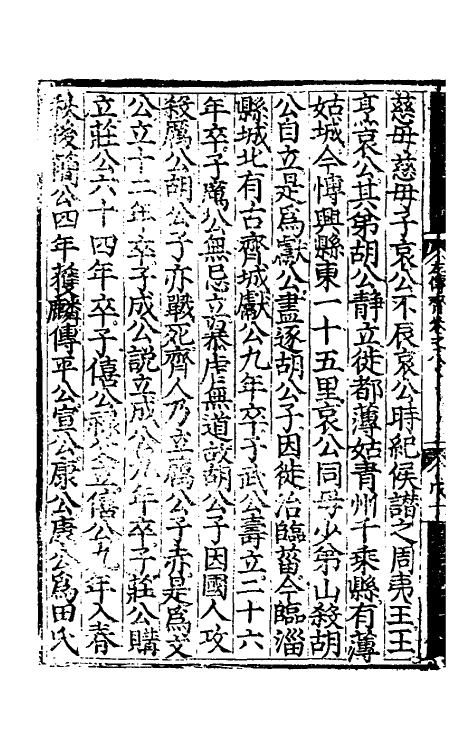 慈母慈母子哀公不辰哀公時紀侯譖之周夷王王
烹哀公其弟胡公靜立徙都薄姑青州千乘縣有薄
姑城今愽興縣東一十五里哀公同母少弟山殺胡
公自立是爲獻公盡逐胡公子因徙治臨菑今臨淄
縣城北有古齊城獻公九年卒子武公壽立二十六
年卒子厲公無忌立暴虐無道故胡公子因國人攻
殺厲公胡公子亦戰死齊人乃立厲公子赤是爲文
公立十二年卒子成公説立成公九年卒子莊公購
立莊公六十四年卒子僖公祿父立僖公九年入春
秋後簡公四年獲麟傳平公宣公康公康公爲田氏